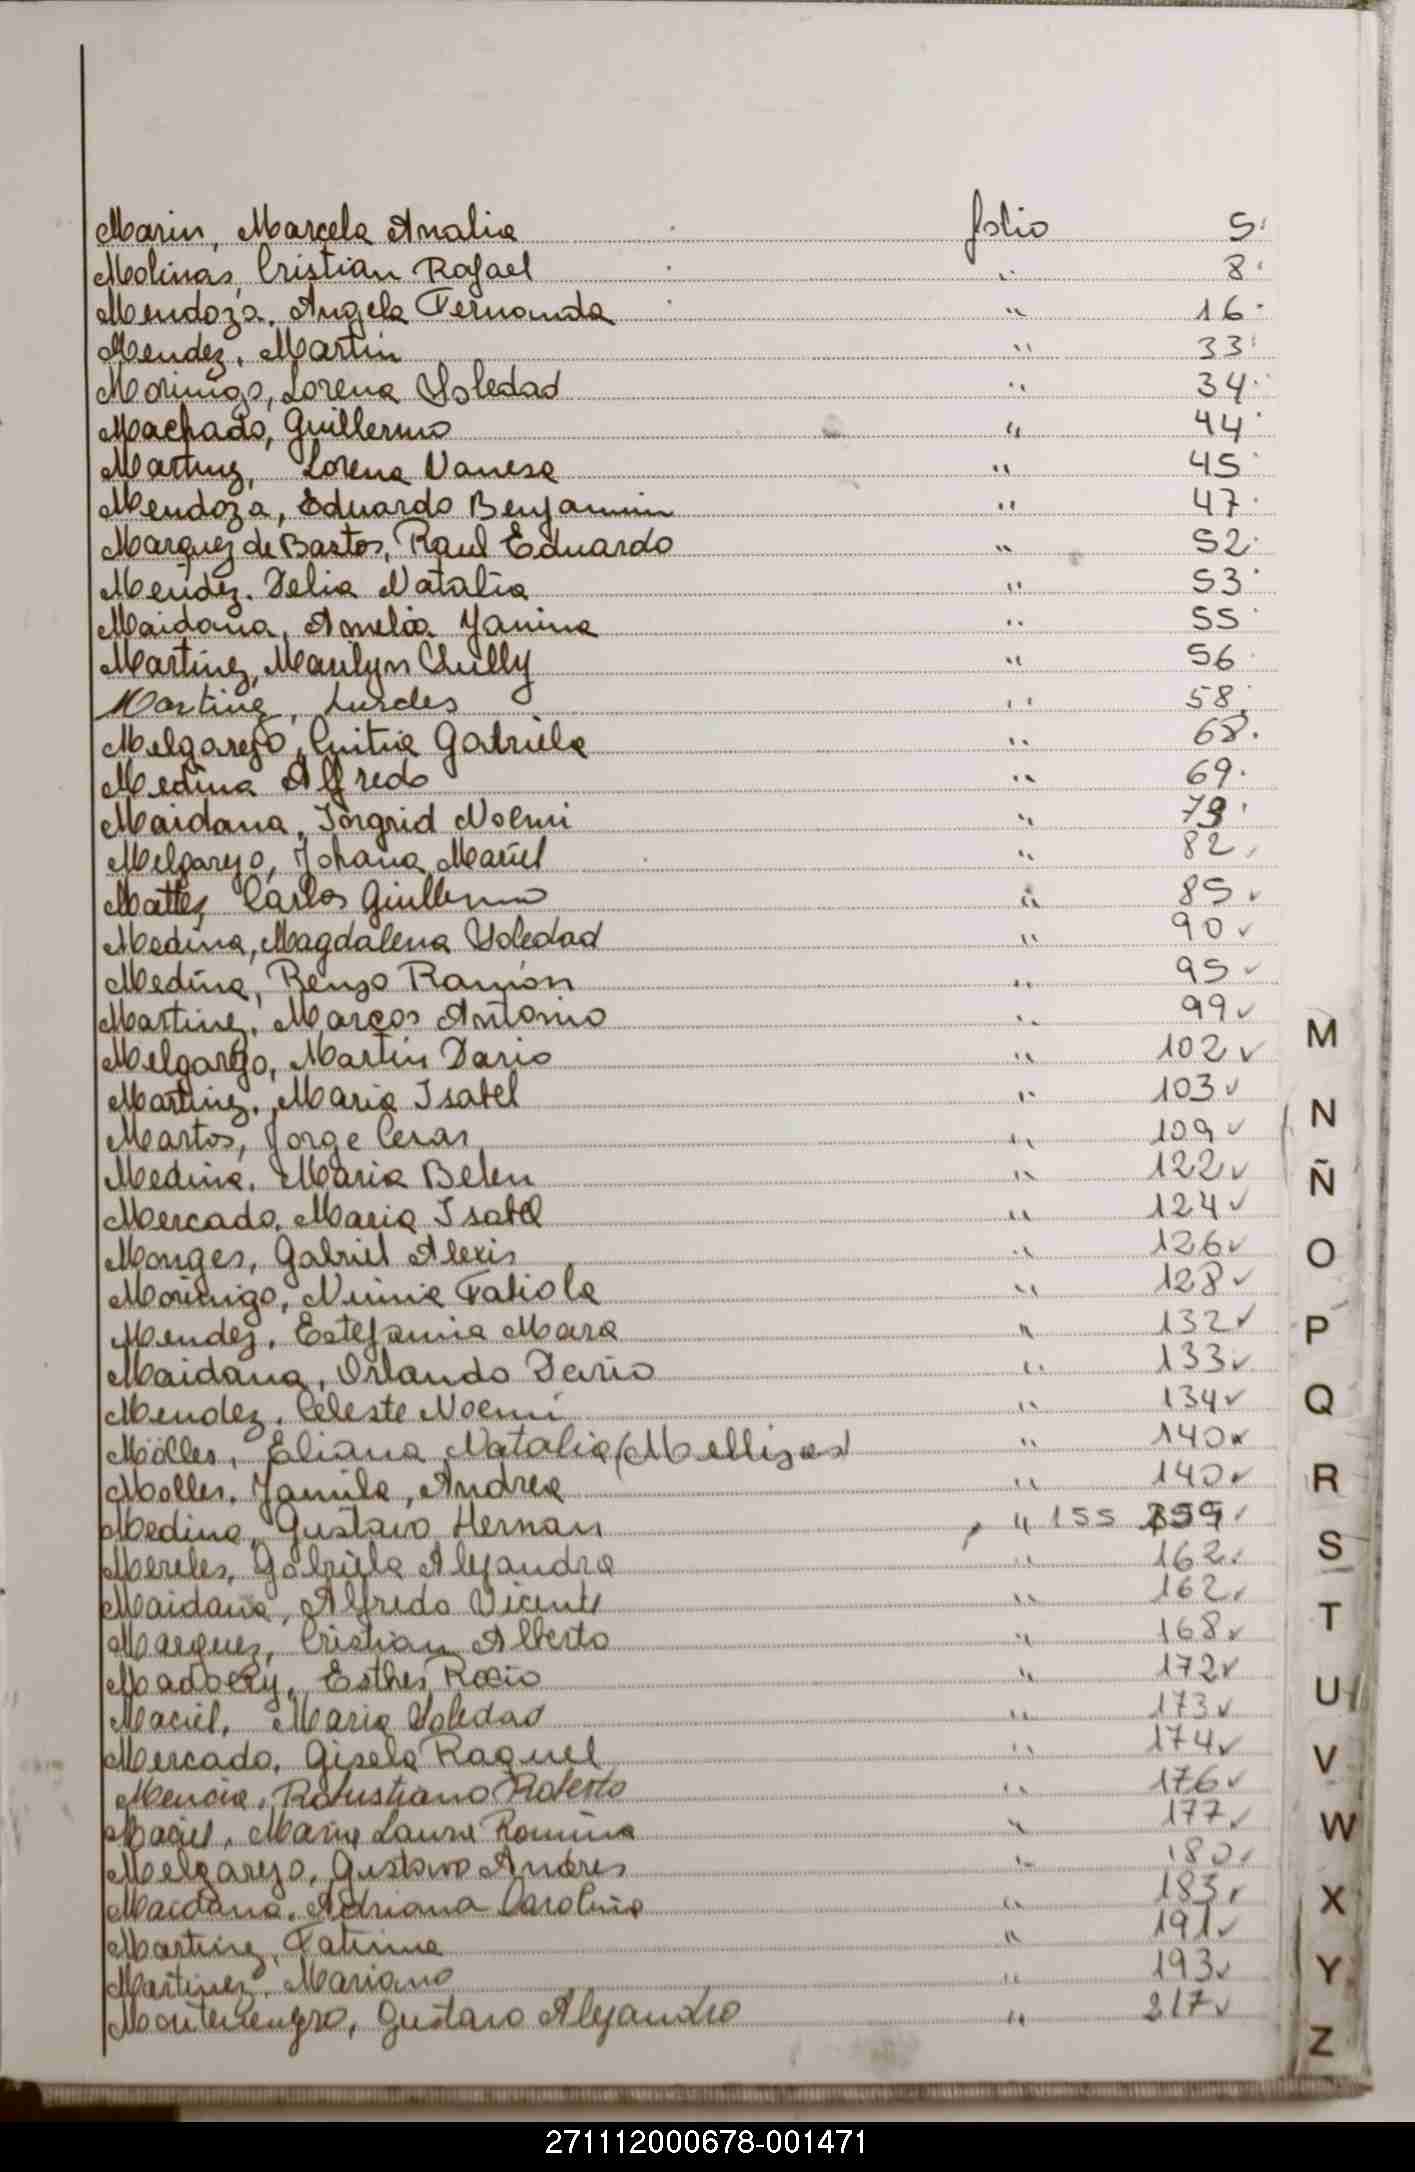 Marin, Marcela Analia folio 5
Molinas, Cristian Rafael " 8
Mendoza, Angela Fernanda " 16
Mendez, Martin " 33
Morinigo, Lorena Soledad " 34
Machado, Guillermo " 44
Martinez, Lorena Vanesa " 45
Mendoza, Eduardo Benjamin " 47
Marquez de Bastos, Raul Eduardo " 52
Mendez. Delia Natalia " 53
Maidana, Amelia Yanina " 55
Martinez, Marilyn " 56
Martinez, Lurdes " 58
Melgarejo, Cintia Gabriela " 68
Medina Alfredo " 69
Maidana, Ingrid Noemi " 79
Melgarejo, Johana Mariel " 82
Mattes, Carlos Guillermo " 85
Medina, Magdalena Soledad " 90
Medina, Renzo Ramón " 95
Martinez, Marcos Antonio " 99
Melgarejo, Martin Dario " 102
Martinez, Maria Isabel " 103
Martos, Jorge Cesar " 109
Medina, Maria Belen " 122
Mercado, Maria Isabel " 124
Monges, Gabriel Alexis " 126
Morinigo, Ninnia Fabiola " 128
Mendez, Estefania Mara " 132
Maidana, Orlando Dario " 133
Mendez, Celeste Noemi " 134
Molles, Eliana Natalia (Mellizas) " 140
Molles, Jamila, Andrea " 140
Medina, Gustavo Hernan " 155
Mereles, Gabriela Alejandra " 162
Maidana, Alfredo Vicente " 162
Marques, Cristian Alberto " 168
Esther Rocio " 172
Maciel, Maria Soledad " 173
Mercado, Gisela Raquel " 174
Mencia, Robustiano Roberto " 176
Maciel, Maria Laura Romina " 177
Melgarejo, Gustavo Andres " 180
Maidana, Adriana Carolina " 183
Martinez, Fatima " 191
Martinez, Mariano " 193
Montenegro, Gustavo Alejandro " 217
M
N
Ñ
O
P
Q
R
S
T
U
V
W
X
Y
Z
271112000678-001471